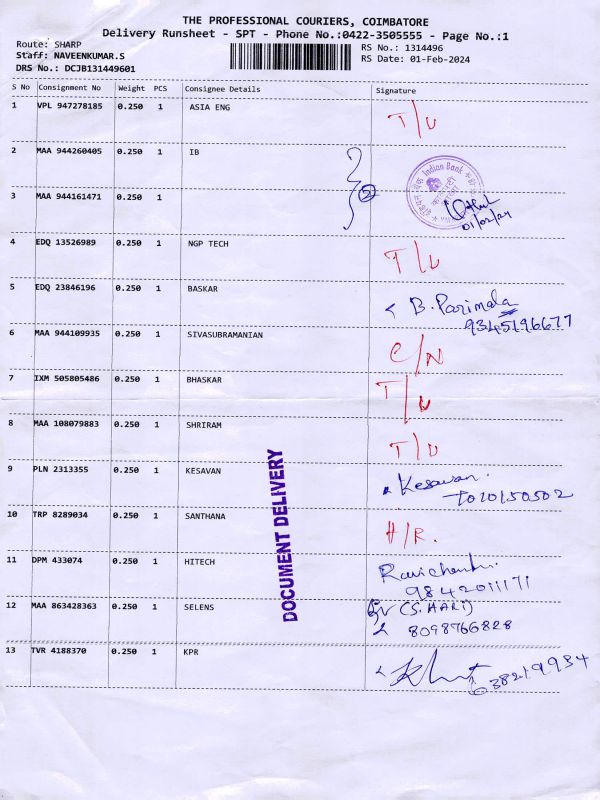 THE PROFESSIONAL COURIERS, COIMBATORE
Delivery Runsheet - SPT - Phone No.:0422-3505555 - Page No.:1
Route: SHARP
Staff: NAVEENKUMAR.S
DRS No.: DCJB131449601
RS No.: 1314496
RS Date: 01-Feb-2024
S No Consignment No Weight PCS Consignee Details Signature
1 VPL 947278185 0.250 1 ASIA ENG T/U
2 MAA 944260405 0.250 1 IB
Indian Bank
3 MAA 944161471 0.250 1 2
01/02/24
4 EDQ 13526989 0.250 1 NGP TECH T/U
5 EDQ 23846196 0.250 1 BASKAR B. Parimala
9345196677
6 MAA 944109935 0.250 1 SIVASUBRAMANIAN C/N
7 IXM 505805486 0.250 1 BHASKAR T/U
8 MAA 108079883 0.250 1 SHRIRAM T/U
9 PLN 2313355 0.250 1 KESAVAN Kesavan.
10 TRP 8289034 0.250 1 SANTHANA H/R.
11 DPM 433074 0.250 1 HITECH
9842011171
12 MAA 863428363 0.250 1 SELENS (S.HARI)
8098766828
13 TVR 4188370 0.250 1 KPR
DOCUMENT DELIVERY